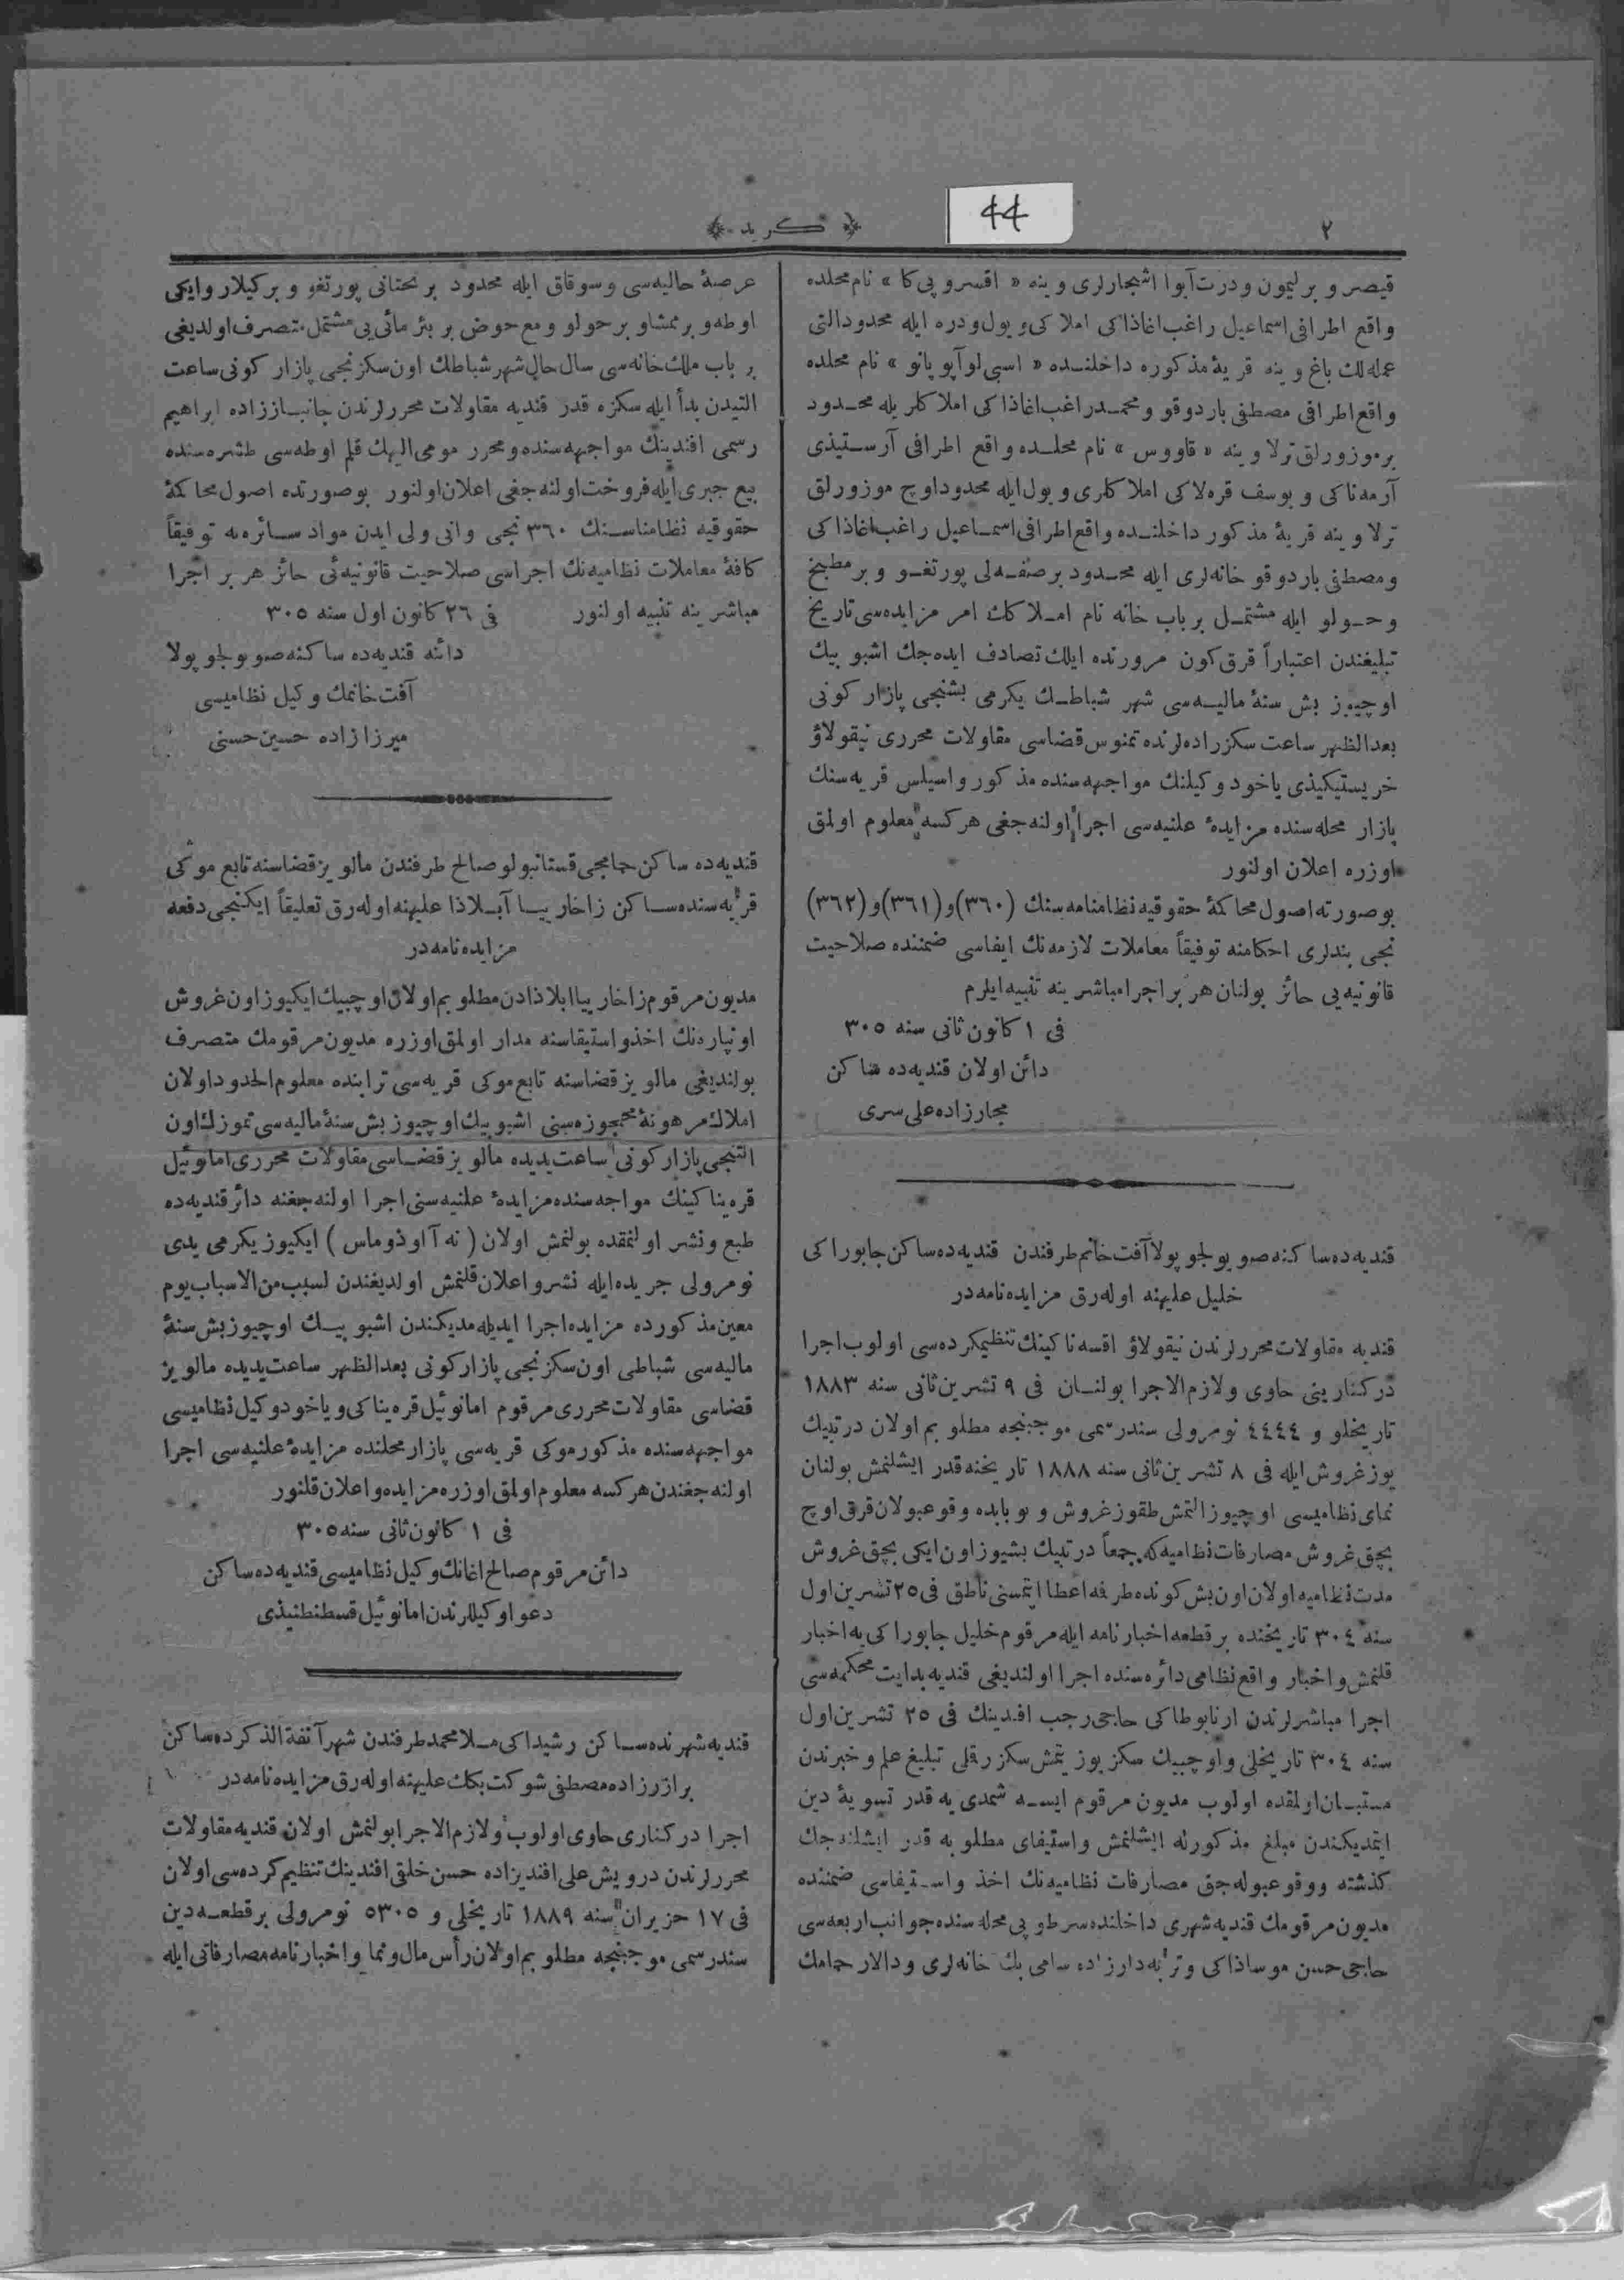 ٢
44
﴿ كريد ﴾
قيصر و بر ليمون ودرت آيوا اشجارلرى وينه « اقسرو پى كا » نام محلده
واقع اطرافى اسماعيل راغب اغاذاكى املاكى و يول ودره ايله محدود التى
عمله لك باغ وينه قريۀ مذكوره داخلنده « اسبى لو آپو پانو » نام محلده
واقع اطرافى مصطفى باردوقو ومحمد راغب اغاذاكى املاكلر يله محدود
بر موزورلق ترلا وينه « قاووس » نام محلده واقع اطرافى آرستيذى
آرمه ناكى و يوسف قره لاكى املاكلرى و يول ايله محدود اوچ موزورلق
ترلا وينه قريۀ مذكور داخلنده واقع اطرافى اسماعيل راغب اغاذاكى
ومصطفى باردوقو خانه لرى ايله محدود بر صفه لى پورتغو و بر مطبخ
وحولو ايله مشتمل بر باب خانه نام املاكك امر مزايده سى تاريخ
تبليغندن اعتباراً قرق كون مرورنده ايلك تصادف ايده جك اشبو بيك
اوچيوز بش سنۀ ماليه سى شهر شباطك يكرمى بشنجى پازار كونى
بعد الظهر ساعت سكز راده لرنده تمنوس قضاسى مقاولات محررى نيقولاؤ
خريستيكيذى ياخود وكيلنك مواجهه سنده مذكور واسيلس قريه سنك
پازار محله سنده مزايدۀ علنيه سى اجرا اولنه جغى هركسه معلوم اولمق
اوزره اعلان اولنور
بوصورته اصول محاكمۀ حقوقيه نظامنامه سنك (٣٦٠) و (٣٦١) و (٣٦٢)
نجى بندلرى احكامنه توفيقاً معاملات لازمه نك ايفاسى ضمننده صلاحيت
قانونيه يى حائز بولنان هر بر اجرا مباشرينه تنبيه ايلرم
فى ١ كانون ثانى سنه ٣٠٥
دائن اولان قنديه ده ساكن
مجارزاده على سرى
قنديه ده ساكنه صويولجو پولا آفت خانم طرفندن قنديه ده ساكن جابوراكى
خليل عليهنه اوله رق مزايده نامه در
قنديه مقاولات محررلرندن نيقولاؤ اقسه ناكينك تنظيمكرده سى اولوب اجرا
دركنارينى حاوى ولازم الاجرا بولنان فى ٩ تشرين ثانى سنه ١٨٨٣
تاريخلو و ٤٤٤٤ نومرولى سند رسمى موجبنجه مطلوبم اولان درتبيك
يوز غروش ايله فى ٨ تشرين ثانى سنه ١٨٨٨ تاريخنه قدر ايشلنمش بولنان
نماى نظاميسى اوچيوز التمش طقوز غروش و بوبابده وقوعبولان قرق اوچ
بچق غروش مصارفات نظاميه كه جمعاً درتبيك بشيوز اون ايكى بچق غروش
مدت نظاميه اولان اون بش كونده طرفه اعطا ايتمسنى ناطق فى ٢٥ تشرين اول
سنه ٣٠٤ تاريخنده بر قطعه اخبارنامه ايله مرقوم خليل جابوراكى يه اخبار
قلنمش و اخبار واقع نظامى دائره سنده اجرا اولنديغى قنديه بدايت محكمه سى
اجرا مباشرلرندن ارنابوطاكى حاجى رجب افدينك فى ٢٥ تشرين اول
سنه ٣٠٤ تاريخلى و اوچبيك سكزيوز يتمش سكز رقلى تبليغ علم و خبرندن
مستبان اولمقده اولوب مديون مرقوم ايسه شمدى يه قدر تسويۀ دين
ايتمديكندن مبلغ مذكورله ايشلنمش و استيفاى مطلوبه قدر ايشلنه جك
كذشته و وقوعبوله جق مصارفات نظاميه نك اخذ و استيفاسى ضمننده
مديون مرقومك قنديه شهرى داخلنده سر طوپى محله سنده جوانب اربعه سى
حاجى حسن موساذاكى و تربه دارزاده سامى بك خانه لرى و دالار حمامك
عرصۀ حاليه سى وسوقاق ايله محدود بر تحتانى پورتغو و بر كيلار و ايكى
اوطه و بر ممشا و بر حولو و مع حوض بر بئر مائى يى مشتمل متصرف اولديغى
بر باب ملك خانه سى سال حال شهر شباطك اون سكزنجى پازار كونى ساعت
التيدن بدأ ايله سكزه قدر قنديه مقاولات محررلرندن جانباززاده ابراهيم
رسمى افندينك مواجهه سنده و محرر مومى اليهك قلم اوطه سى طشره سنده
بيع جبرى ايله فروخت اولنه جغى اعلان اولنور بوصورتده اصول محاكمۀ
حقوقيه نظامناسنك ٣٦٠ نجى وانى ولى ايدن مواد سائره يه توفيقاً
كافۀ معاملات نظاميه نك اجراسى صلاحيت قانونيه ئى حائز هر بر اجرا
مباشرينه تنبيه اولنور فى ٢٦ كانون اول سنه ٣٠٥
دائنه قنديه ده ساكنه صويولجو پولا
آفت خانمك وكيل نظاميسى
ميرزازاده حسين حسنى
قنديه ده ساكن جامجى قستانبولو صالح طرفندن مالويز قضاسنه تابع موكى
قريه سنده ساكن زاخاريا آبلاذا عليهنه اوله رق تعليقاً ايكنجى دفعه
مزايده نامه در
مديون مرقوم زاخاريا ابلاذادن مطلوبم اولان اوچبيك ايكيوز اون غروش
اونپاره نك اخذ واستيفاسنه مدار اولمق اوزره مديون مرقومك متصرف
بولنديغى مالويز قضاسنه تابع موكى قريه سى ترابنده معلوم الحدود اولان
املاك مرهونۀ محجوزه سنى اشبو بيك اوچيوز بش سنۀ ماليه سى تموزك اون
التنجى پازار كونى ساعت يديده مالويز قضاسى مقاولات محررى امانوئيل
قره يناكينك مواجهه سنده مزايدۀ علنيه سنى اجرا اولنه جغنه دائر قنديه ده
طبع و نشر اولنمقده بولنمش اولان ( نه آ اوذوماس ) ايكيوز يكرمى يدى
نومرولى جريده ايله نشر و اعلان قلنمش اولديغندن لسبب من الاسباب يوم
معين مذكورده مزايده اجرا ايديله مديكندن اشبو بيك اوچيوز بش سنۀ
ماليه سى شباطى اون سكزنجى پازار كونى بعد الظهر ساعت يديده مالويز
قضاسى مقاولات محررى مرقوم امانوئيل قره يناكى و ياخود وكيل نظاميسى
مواجهه سنده مذكور موكى قريه سى پازار محلنده مزايدۀ علنيه سى اجرا
اولنه جغندن هركسه معلوم اولمق اوزره مزايده و اعلان قلنور
فى ١ كانون ثانى سنه ٣٠٥
دائن مرقوم صالح اغانك وكيل نظاميسى قنديه ده ساكن
دعوا وكيللرندن امانوئيل قسطنطنيذى
قنديه شهرنده ساكن رشيداكى ملا محمد طرفندن شهر آنفة الذكرده ساكن
برازرزاده مصطفى شوكت بكك عليهنه اوله رق مزايده نامه در
اجرا دركنارى حاوى اولوب ولازم الاجرا بولنمش اولان قنديه مقاولات
محررلرندن درويش على افنديزاده حسن خلقى افندينك تنظيم كرده سى اولان
فى ١٧ حزيران سنه ١٨٨٩ تاريخلى و ٥٣٠٥ نومرولى بر قطعه دين
سند رسمى موجبنجه مطلوبم اولان رأس مال و نما و اخبارنامه مصارفاتى ايله